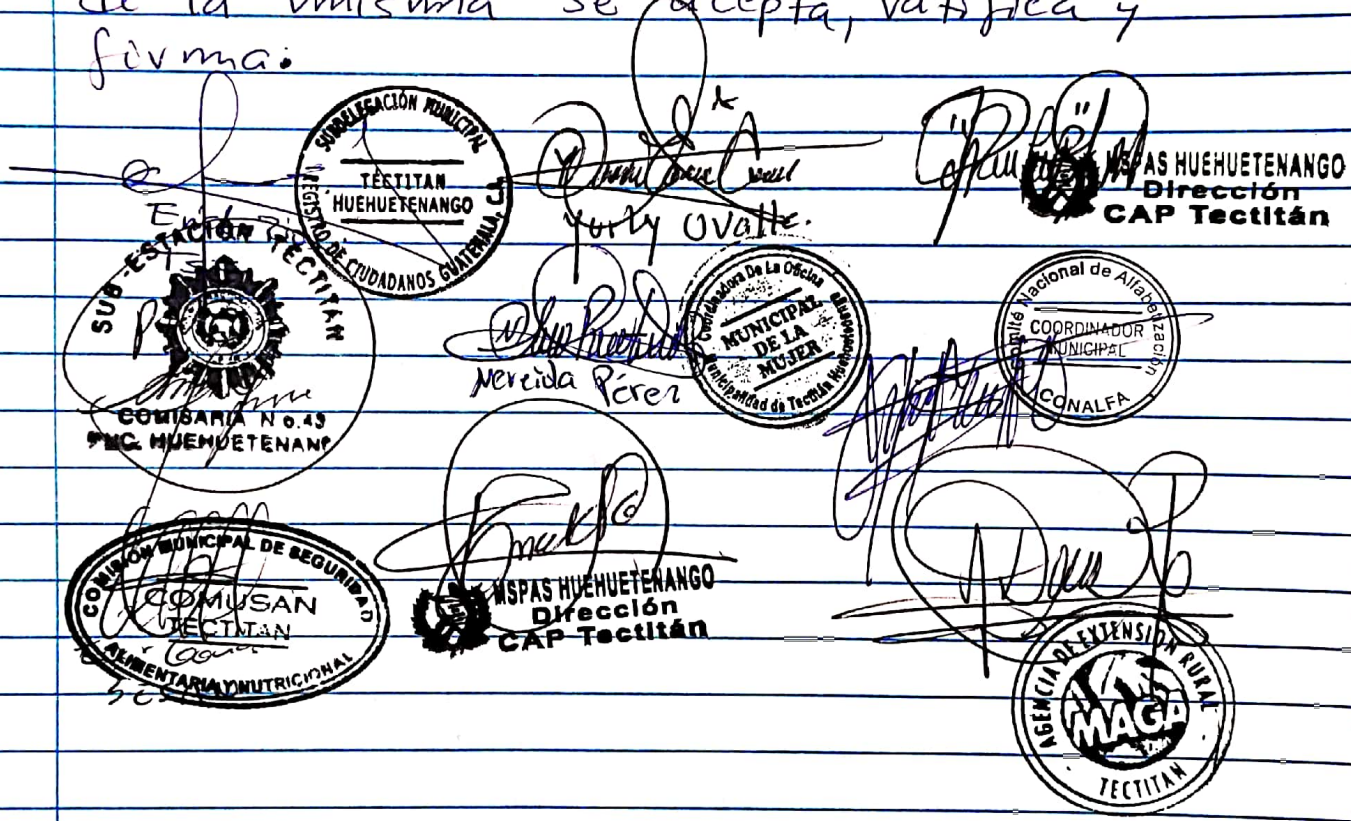 de la misma se acepta, ratifica y
firma.
SUBDELEGACIÓN MUNICIPAL
TECTITAN
HUEHUETENANGO
REGISTRO DE CIUDADANOS GUATEMALA, C.A.
Yurly Ovalle.
MSPAS HUEHUETENANGO
Dirección
CAP Tectitán
SUB-ESTACIÓN TECTITÁN
COMISARIA No.43
HUEHUETENANGO
Nereida Pérez
Coordinadora De La Oficina
MUNICIPAL
DE LA
MUJER
Municipalidad de Tectitán Huehuetenango
Comité Nacional de Alfabetización
COORDINADOR
MUNICIPAL
CONALFA
COMISIÓN MUNICIPAL DE SEGURIDAD
COMUSAN
TECTITAN
ALIMENTARIA Y NUTRICIONAL
MSPAS HUEHUETENANGO
Dirección
CAP Tectitán
AGENCIA DE EXTENSIÓN RURAL
MAGA
TECTITAN